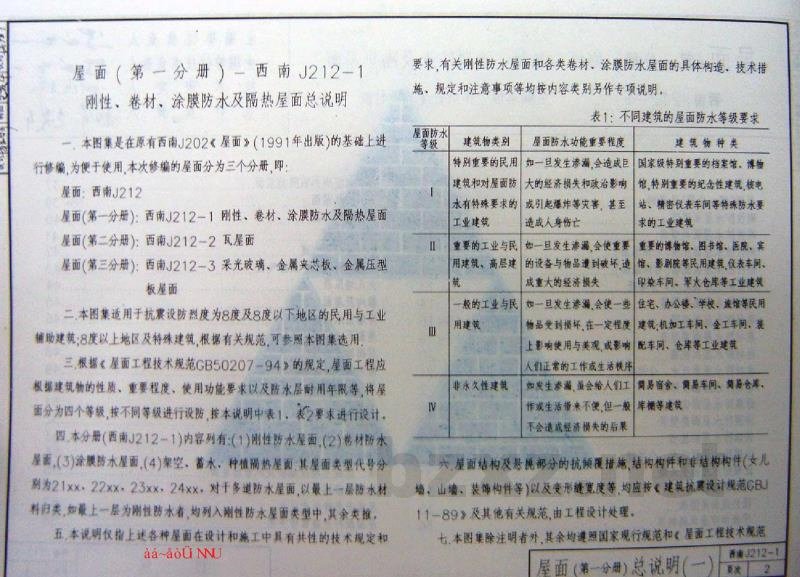 屋面(第一分册)-西南J212-1
刚性、卷材、涂膜防水及隔热屋面总说明
一.本图集是在原有西南J202《屋面》(1991年出版)的基础上进
行修编,为便于使用,本次修编的屋面分为三个分册,即:
屋面:西南J212
屋面(第一分册):西南J212-1 刚性、卷材、涂膜防水及隔热屋面
屋面(第二分册):西南J212-2 瓦屋面
屋面(第三分册):西南J212-3 采光玻璃、金属夹芯板、金属压型
板屋面
二.本图集适用于抗震设防烈度为8度及8度以下地区的民用与工业
辅助建筑;8度以上地区及特殊建筑,根据有关规范,可参照本图集选用.
三.根据《屋面工程技术规范GB50207-94》的规定,屋面工程应
根据建筑物的性质、重要程度、使用功能要求以及防水层耐用年限等,将屋
面分为四个等级,按不同等级进行设防,按本说明中表1、表2要求进行设计.
四.本分册(西南J212-1)内容列有:(1)刚性防水屋面,(2)卷材防水
屋面,(3)涂膜防水屋面,(4)架空、蓄水、种植隔热屋面.其屋面类型代号分
别为21xx、22xx、23xx、24xx。对于多道防水屋面,以最上一层防水材
料归类,如最上一层为刚性防水者,均列入刚性防水屋面类型中,其余类推.
五.本说明仅指上述各种屋面在设计和施工中具有共性的技术规定和
要求,有关刚性防水屋面和各类卷材、涂膜防水屋面的具体构造、技术措
施、规定和注意事项等均按内容类别另作专项说明.
表1:不同建筑的屋面防水等级要求
屋面防水等级 建筑物类别 屋面防水功能重要程度 建筑物种类
I 特别重要的民用 如一旦发生渗漏,会造成巨 国家级特别重要的档案馆、博物
建筑和对屋面防 大的经济损失和政治影响 馆,特别重要的纪念性建筑,核电
水有特殊要求的 或引起爆炸等灾害,甚至 站、精密仪表车间等特殊防水要
工业建筑 造成人身伤亡 求的工业建筑
II 重要的工业与民 如一旦发生渗漏,会使重要 重要的博物馆、图书馆、医院、宾
用建筑、高层建 的设备与物品遭到破坏,造 馆、影剧院等民用建筑,仪表车间、
筑 成重大的经济损失 印染车间、军火仓库等工业建筑
III 一般的工业与民 如一旦发生渗漏,会使一些 住宅、办公楼、学校、旅馆等民用
用建筑 物品受到损坏,在一定程度 建筑;机加工车间、金工车间、装
上影响使用与美观,或影响 配车间、仓库等工业建筑
人们正常的工作或生活秩序
IV 非永久性建筑 如发生渗漏,虽会给人们工 简易宿舍、简易车间、简易仓库、
作或生活带来不便,但一般 库棚等建筑
不会造成经济损失的后果
六.屋面结构及悬挑部分的抗倾覆措施,结构构件和非结构构件(女儿
墙、山墙、装饰构件等)以及变形缝宽度等,均应按《建筑抗震设计规范GBJ
11-89》及其他有关规范,由工程设计处理.
七.本图集除注明者外,其余均遵照国家现行规范和《屋面工程技术规范
屋面(第一分册)总说明(一)
西南J212-1
页次 2
àá~âòÜ NNU